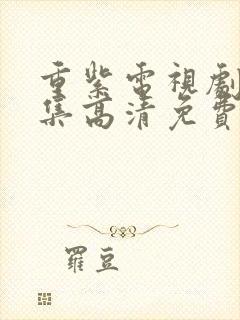 重紫電視劇
集高清免費
羅豆